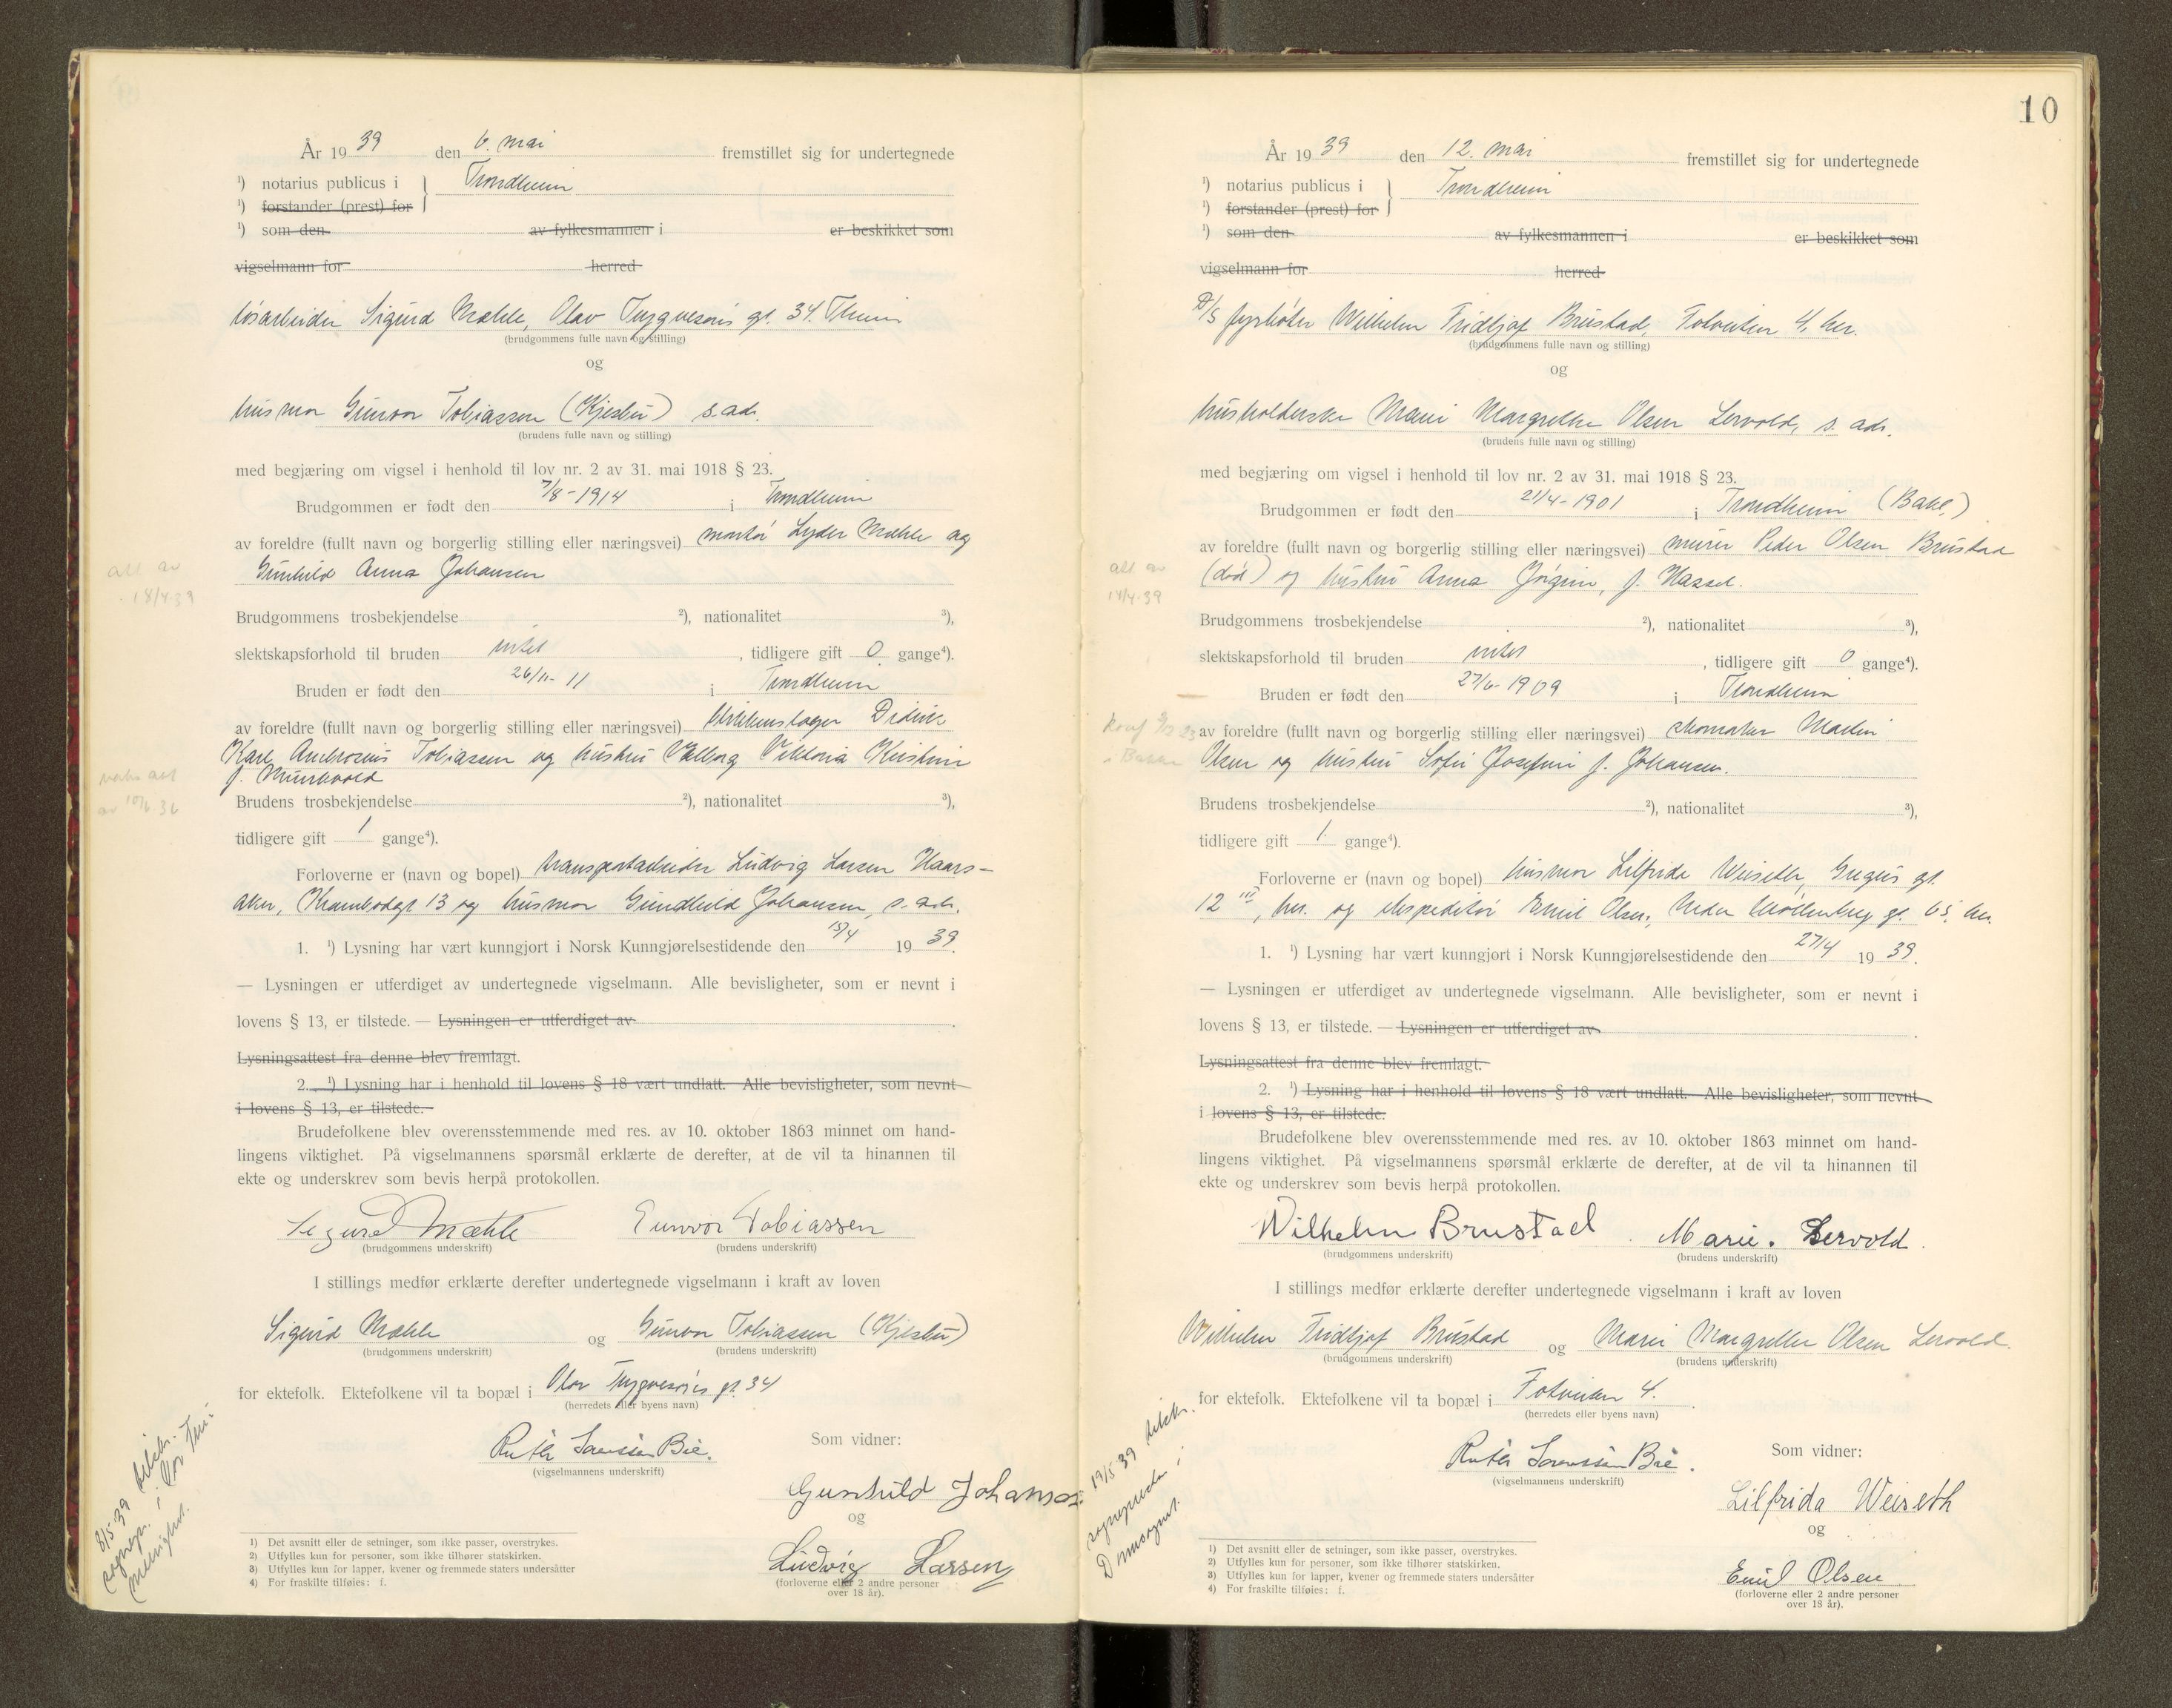 År 19 39 den 6. mai fremstillet sig for undertegnede
¹) notarius publicus i } Trondheim
¹) forstander (prest) for
¹) som den av fylkesmannen i er beskikket som
vigselmann for herred
løsarbeider Sigurd Mæhle, Olav Trygvesøns gt. 34. Theim
(brudgommens fulle navn og stilling)
og
husmor Gunvor Tobiassen (Kjesbu) s. adr.
(brudens fulle navn og stilling)
med begjæring om vigsel i henhold til lov nr. 2 av 31. mai 1918 § 23.
Brudgommen er født den 7/8-1914 i Trondheim
av foreldre (fullt navn og borgerlig stilling eller næringsvei) montør Lyder Mæhle og
Gunhild Anna Johansen
att av
18/4.39
Brudgommens trosbekjendelse ²), nationalitet ³),
slektskapsforhold til bruden intet, tidligere gift 0 gange⁴).
Bruden er født den 26/11-11 i Trondheim
av foreldre (fullt navn og borgerlig stilling eller næringsvei) Didrik
Karl Ambrosius Tobiassen og hustru Valborg Viktoria Kristine
f. Munkvold
av 10/6.36
Brudens trosbekjendelse ²), nationalitet ³),
tidligere gift 1 gange⁴).
Forloverne er (navn og bopel) transportarbeider Ludvig Larsen Haars-
aker, Krambodgt 13 og husmor Gundhild Johansen, s. adr.
1. ¹) Lysning har vært kunngjort i Norsk Kunngjørelsestidende den 15/4 19 39.
— Lysningen er utferdiget av undertegnede vigselmann. Alle bevisligheter, som er nevnt i
lovens § 13, er tilstede. — Lysningen er utferdiget av .
Lysningsattest fra denne blev fremlagt.
2. ¹) Lysning har i henhold til lovens § 18 vært undlatt. Alle bevisligheter, som nevnt
i lovens § 13, er tilstede.
Brudefolkene blev overensstemmende med res. av 10. oktober 1863 minnet om hand-
lingens viktighet. På vigselmannens spørsmål erklærte de derefter, at de vil ta hinannen til
ekte og underskrev som bevis herpå protokollen.
Sigurd Mæhle Gunvor Tobiassen
(brudgommens underskrift) (brudens underskrift)
I stillings medfør erklærte derefter undertegnede vigselmann i kraft av loven
Sigurd Mæhle og Gunvor Tobiassen (Kjesbu)
(brudgommens underskrift) (brudens underskrift)
for ektefolk. Ektefolkene vil ta bopæl i Olav Trygvesøns gt. 34
(herredets eller byens navn)
Ruth Sorenssen Bie.
(vigselmannens underskrift)
Som vidner:
Gunhild Johansen
og
Ludvig Larsen
(forloverne eller 2 andre personer
over 18 år).
8/5-39
sognepr. i Vor Frue
menighet.
1) Det avsnitt eller de setninger, som ikke passer, overstrykes.
2) Utfylles kun for personer, som ikke tilhører statskirken.
3) Utfylles kun for lapper, kvener og fremmede staters undersåtter
4) For fraskilte tilføies: f.
10
År 19 39 den 12. mai fremstillet sig for undertegnede
¹) notarius publicus i } Trondheim
¹) forstander (prest) for
¹) som den av fylkesmannen i er beskikket som
vigselmann for herred
D/S fyrbøter Wilhelm Fridtjof Brustad, 4, her.
(brudgommens fulle navn og stilling)
og
husholderske Marie Margrethe Olsen Lervold, s. adr.
(brudens fulle navn og stilling)
med begjæring om vigsel i henhold til lov nr. 2 av 31. mai 1918 § 23.
Brudgommen er født den 21/4-1901 i Trondheim (Bakl.)
av foreldre (fullt navn og borgerlig stilling eller næringsvei) murer Peder Olsen Brustad
(død) og hustru Anna Jørgine, f. Hassel.
att av
14/4.39
Brudgommens trosbekjendelse ²), nationalitet ³),
slektskapsforhold til bruden intet, tidligere gift 0 gange⁴).
Bruden er født den 27/6-1909 i Trondheim
av foreldre (fullt navn og borgerlig stilling eller næringsvei) skomaker Martin
Olsen og hustru Sofie Josefine f. Johansen.
Brudens trosbekjendelse ²), nationalitet ³),
tidligere gift 1. gange⁴).
Forloverne er (navn og bopel) husmor Lilfrida Weiseth, Gregus gt.
12 III, her. og ekspeditør Emil Olsen, Nedre Møllenberg gt. 65, her.
1. ¹) Lysning har vært kunngjort i Norsk Kunngjørelsestidende den 27/4 19 39.
— Lysningen er utferdiget av undertegnede vigselmann. Alle bevisligheter, som er nevnt i
lovens § 13, er tilstede. — Lysningen er utferdiget av .
Lysningsattest fra denne blev fremlagt.
2. ¹) Lysning har i henhold til lovens § 18 vært undlatt. Alle bevisligheter, som nevnt
i lovens § 13, er tilstede.
Brudefolkene blev overensstemmende med res. av 10. oktober 1863 minnet om hand-
lingens viktighet. På vigselmannens spørsmål erklærte de derefter, at de vil ta hinannen til
ekte og underskrev som bevis herpå protokollen.
Wilhelm Brustad. Marie. Lervold.
(brudgommens underskrift) (brudens underskrift)
I stillings medfør erklærte derefter undertegnede vigselmann i kraft av loven
Wilhelm Fridtjof Brustad og Marie Margrethe Olsen Lervold.
(brudgommens underskrift) (brudens underskrift)
for ektefolk. Ektefolkene vil ta bopæl i 4.
(herredets eller byens navn)
Ruth Sorenssen Bie.
(vigselmannens underskrift)
Som vidner:
Lilfrida Weiseth
og
Emil Olsen
(forloverne eller 2 andre personer
over 18 år).
19/5-39
sogneprest i
Domsognet.
1) Det avsnitt eller de setninger, som ikke passer, overstrykes.
2) Utfylles kun for personer, som ikke tilhører statskirken.
3) Utfylles kun for lapper, kvener og fremmede staters undersåtter
4) For fraskilte tilføies: f.